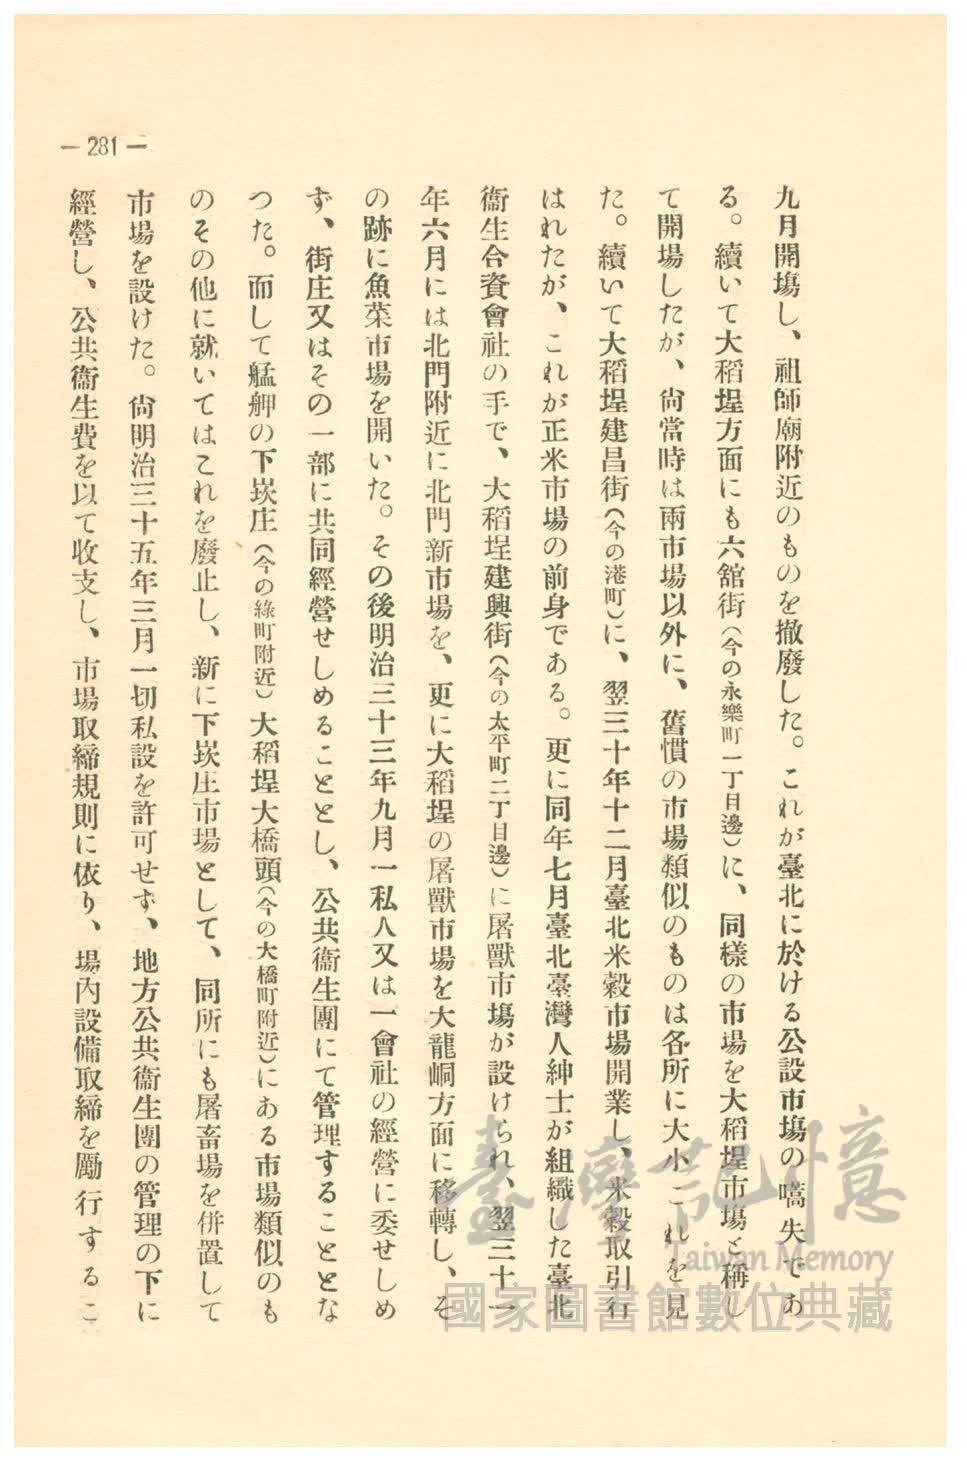 九月開場し、祖師廟附近のものを撤廢した。これが臺北に於ける公設市場の嚆矢であ
る。續いて大稻埕方面にも六舘街（今の永樂町一丁目邊）に、同樣の市場を大稻埕市場と稱し
て開場したが、尙當時は兩市場以外に、舊慣の市場類似のものは各所に大小これを見
た。續いて大稻埕建昌街（今の港町）に、翌三十年十二月臺北米穀市場開業し、米穀取引行
はれたが、これが正米市場の前身である。更に同年七月臺北臺灣人紳士が組織した臺北
衞生合資會社の手で、大稻埕建興街（今の太平町二丁目邊）に屠獸市場が設けられ、翌三十一
年六月には北門附近に北門新市場を、更に大稻埕の屠獸市場を大龍峒方面に移轉し、そ
の跡に魚菜市場を開いた。その後明治三十三年九月一私人又は一會社の經營に委せしめ
ず、街庄又はその一部に共同經營せしめることとし、公共衞生團にて管理することとな
つた。而して艋舺の下崁庄（今の綠町附近）大稻埕大橋頭（今の大橋町附近）にある市場類似のも
のその他に就いてはこれを廢止し、新に下崁庄市場として、同所にも屠畜場を併置して
市場を設けた。尙明治三十五年三月一切私設を許可せず、地方公共衞生團の管理の下に
經營し、公共衞生費を以て收支し、市場取締規則に依り、場內設備取締を勵行するこ
— 281 —
臺灣記憶
Taiwan Memory
國家圖書館數位典藏